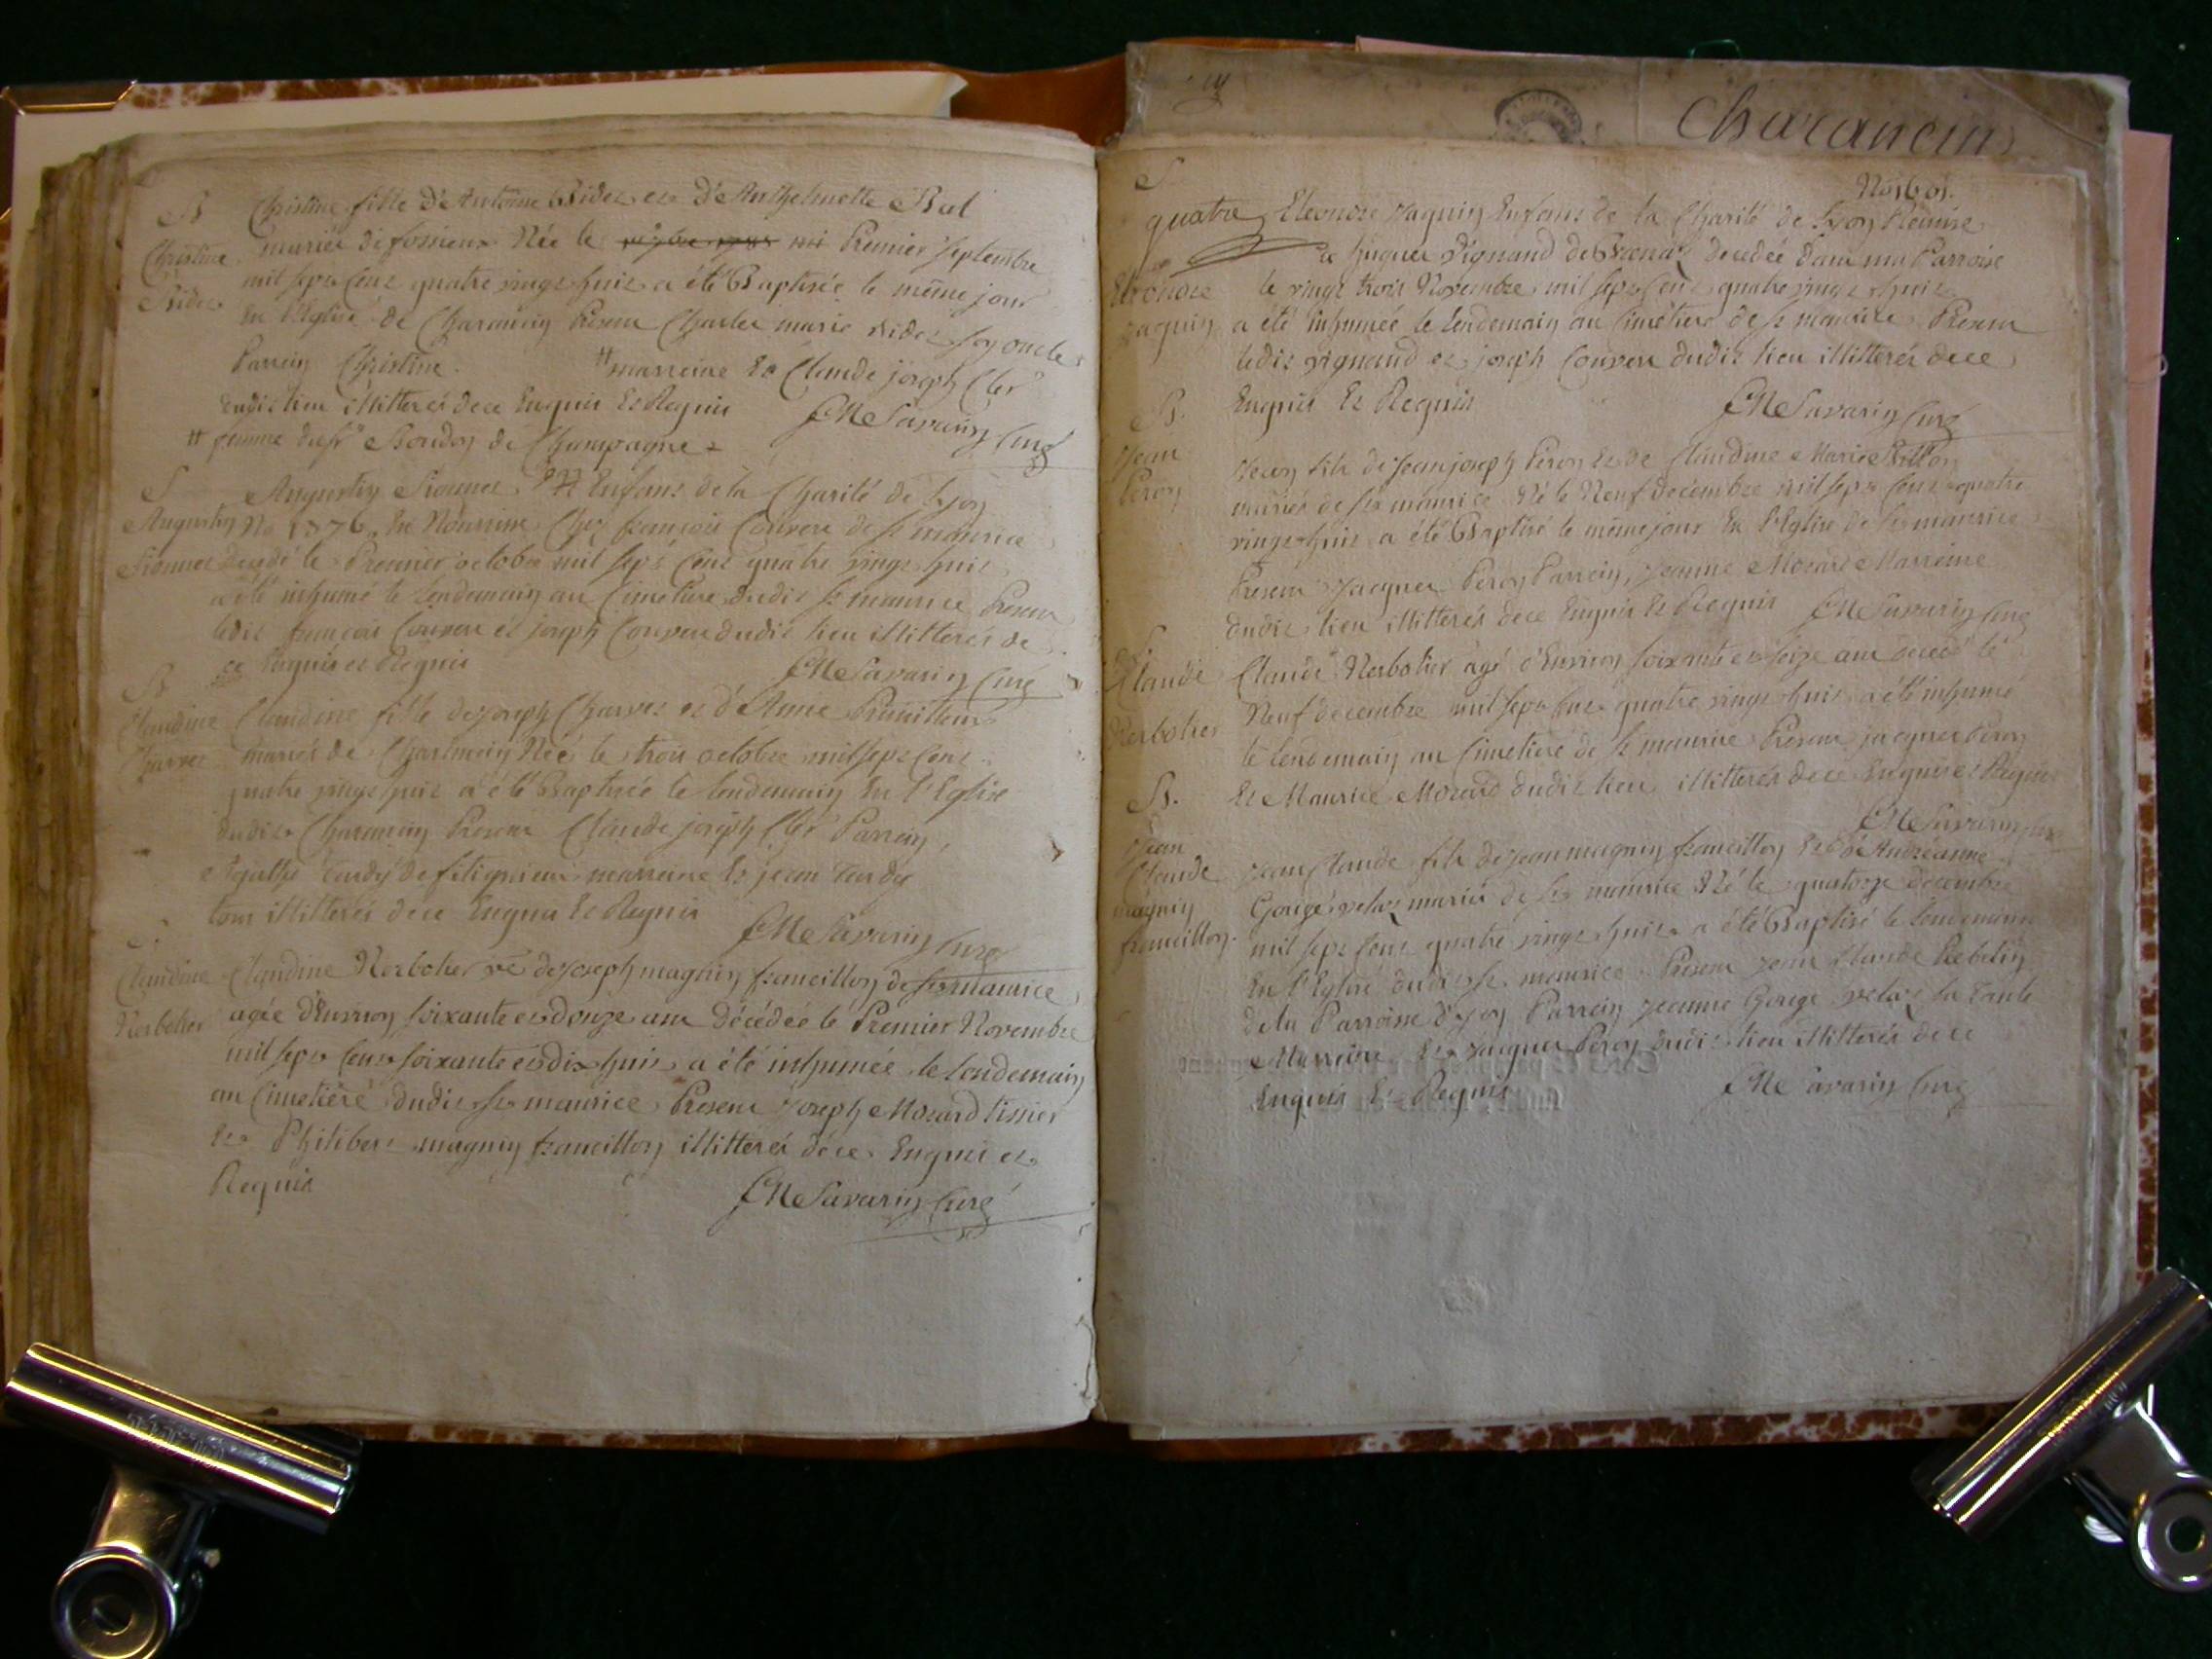 B Christine fille d'Antoine Bidet et d'Anthelmette Bal
Christine mariés de fossieux Née le Premier Septembre
Bidet mil sept cent quatre vingt huit a été Baptisée le même jour
En l'Eglise de Charancin Present Charles marie Bidet son oncle
Parrein Christine # marreine Et Claude joseph Cler
dudit lieu illitterés de ce Enquis Et Requis CM Savarin Curé
# femme du sr Boudon de Champagne
S Augustin Sionnet Enfant de la Charité de Lyon
Augustin No 1376. En Nourrice Chez françois Couveu de st maurice
Sionnet decedé le Premier octobre mil sept cent quatre vingt huit
a été inhumé le lendemain au Cimetiere dudit st maurice Present
ledit françois Couveu et joseph Couveu dudit lieu illitterés de
ce Enquis et Requis CM Savarin Curé
B
Claudine Claudine fille de joseph Charvet et d'Anne
Charvet mariés de Charancin Née le trois octobre mil sept Cent
quatre vingt huit a été Baptisée le lendemain En l'Eglise
dudit Charancin Present Claude joseph Cler Parrein,
Agathe Tardy de filignieux marreine Et jean Tardy
tous illitterés de ce Enquis Et Requis
CM Savarin Curé
S.
Claudine Claudine Nerbolier ve de joseph magnin francillon de st maurice
Nerbolier agée d'Environ soixante et douze ans décédée le Premier Novembre
mil sept Cent soixante et dix huit a été inhumée le lendemain
au Cimetiere dudit st maurice Present joseph Mozard tissier
Et Philibert magnin francillon illitterés de ce Enquis et
Requis CM Savarin Curé
Charancin
S
No 1601.
quatre Eleonore jaquin Enfant de la Charité de Lyon Remise
a huguet vignand de decedée dans ma Parroise
Eleonore le vingt trois Novembre mil sept Cent quatre vingt huit
jaquin a été inhumée le lendemain au Cimetiere de st maurice Present
ledit vignand et joseph Couveu dudit lieu illitterés de ce
B. Enquis Et Requis CM Savarin Curé
Jean Jean fils de Jean joseph Peron Et de Claudine Marie
Peron mariés de st maurice Né le Neuf decembre mil sept Cent quatre
vingt huit a été Baptisé le même jour En l'Eglise de st maurice
Present Jacques Peron Parrein, Jeanne Mozard Marreine
dudit lieu illitterés de ce Enquis Et Requis CM Savarin Curé
S.
Claude Claude Nerbolier agé d'Environ soixante et seize ans decedé le
Nerbolier Neuf decembre mil sept Cent quatre vingt huit a été inhumé
le lendemain au Cimetiere de st maurice Present jacques Peron
B. Et Maurice Mozard dudit lieu illitterés de ce Enquis et Requis
CM Savarin Curé
Jean
Claude Jean Claude fils de Jean magnin francillon Et d'Andréanne
magnin Gougé velas mariés de st maurice Né le quatorze decembre
francillon. mil sept Cent quatre vingt huit a été Baptisé le lendemain
En l'Eglise dudit st maurice Present Jean Claude Rebelin
de la Parroise Parrein Jeanne Gougé velas sa Tante
Marreine Et Jacques Peron dudit lieu illitterés de ce
Enquis Et Requis CM Savarin Curé